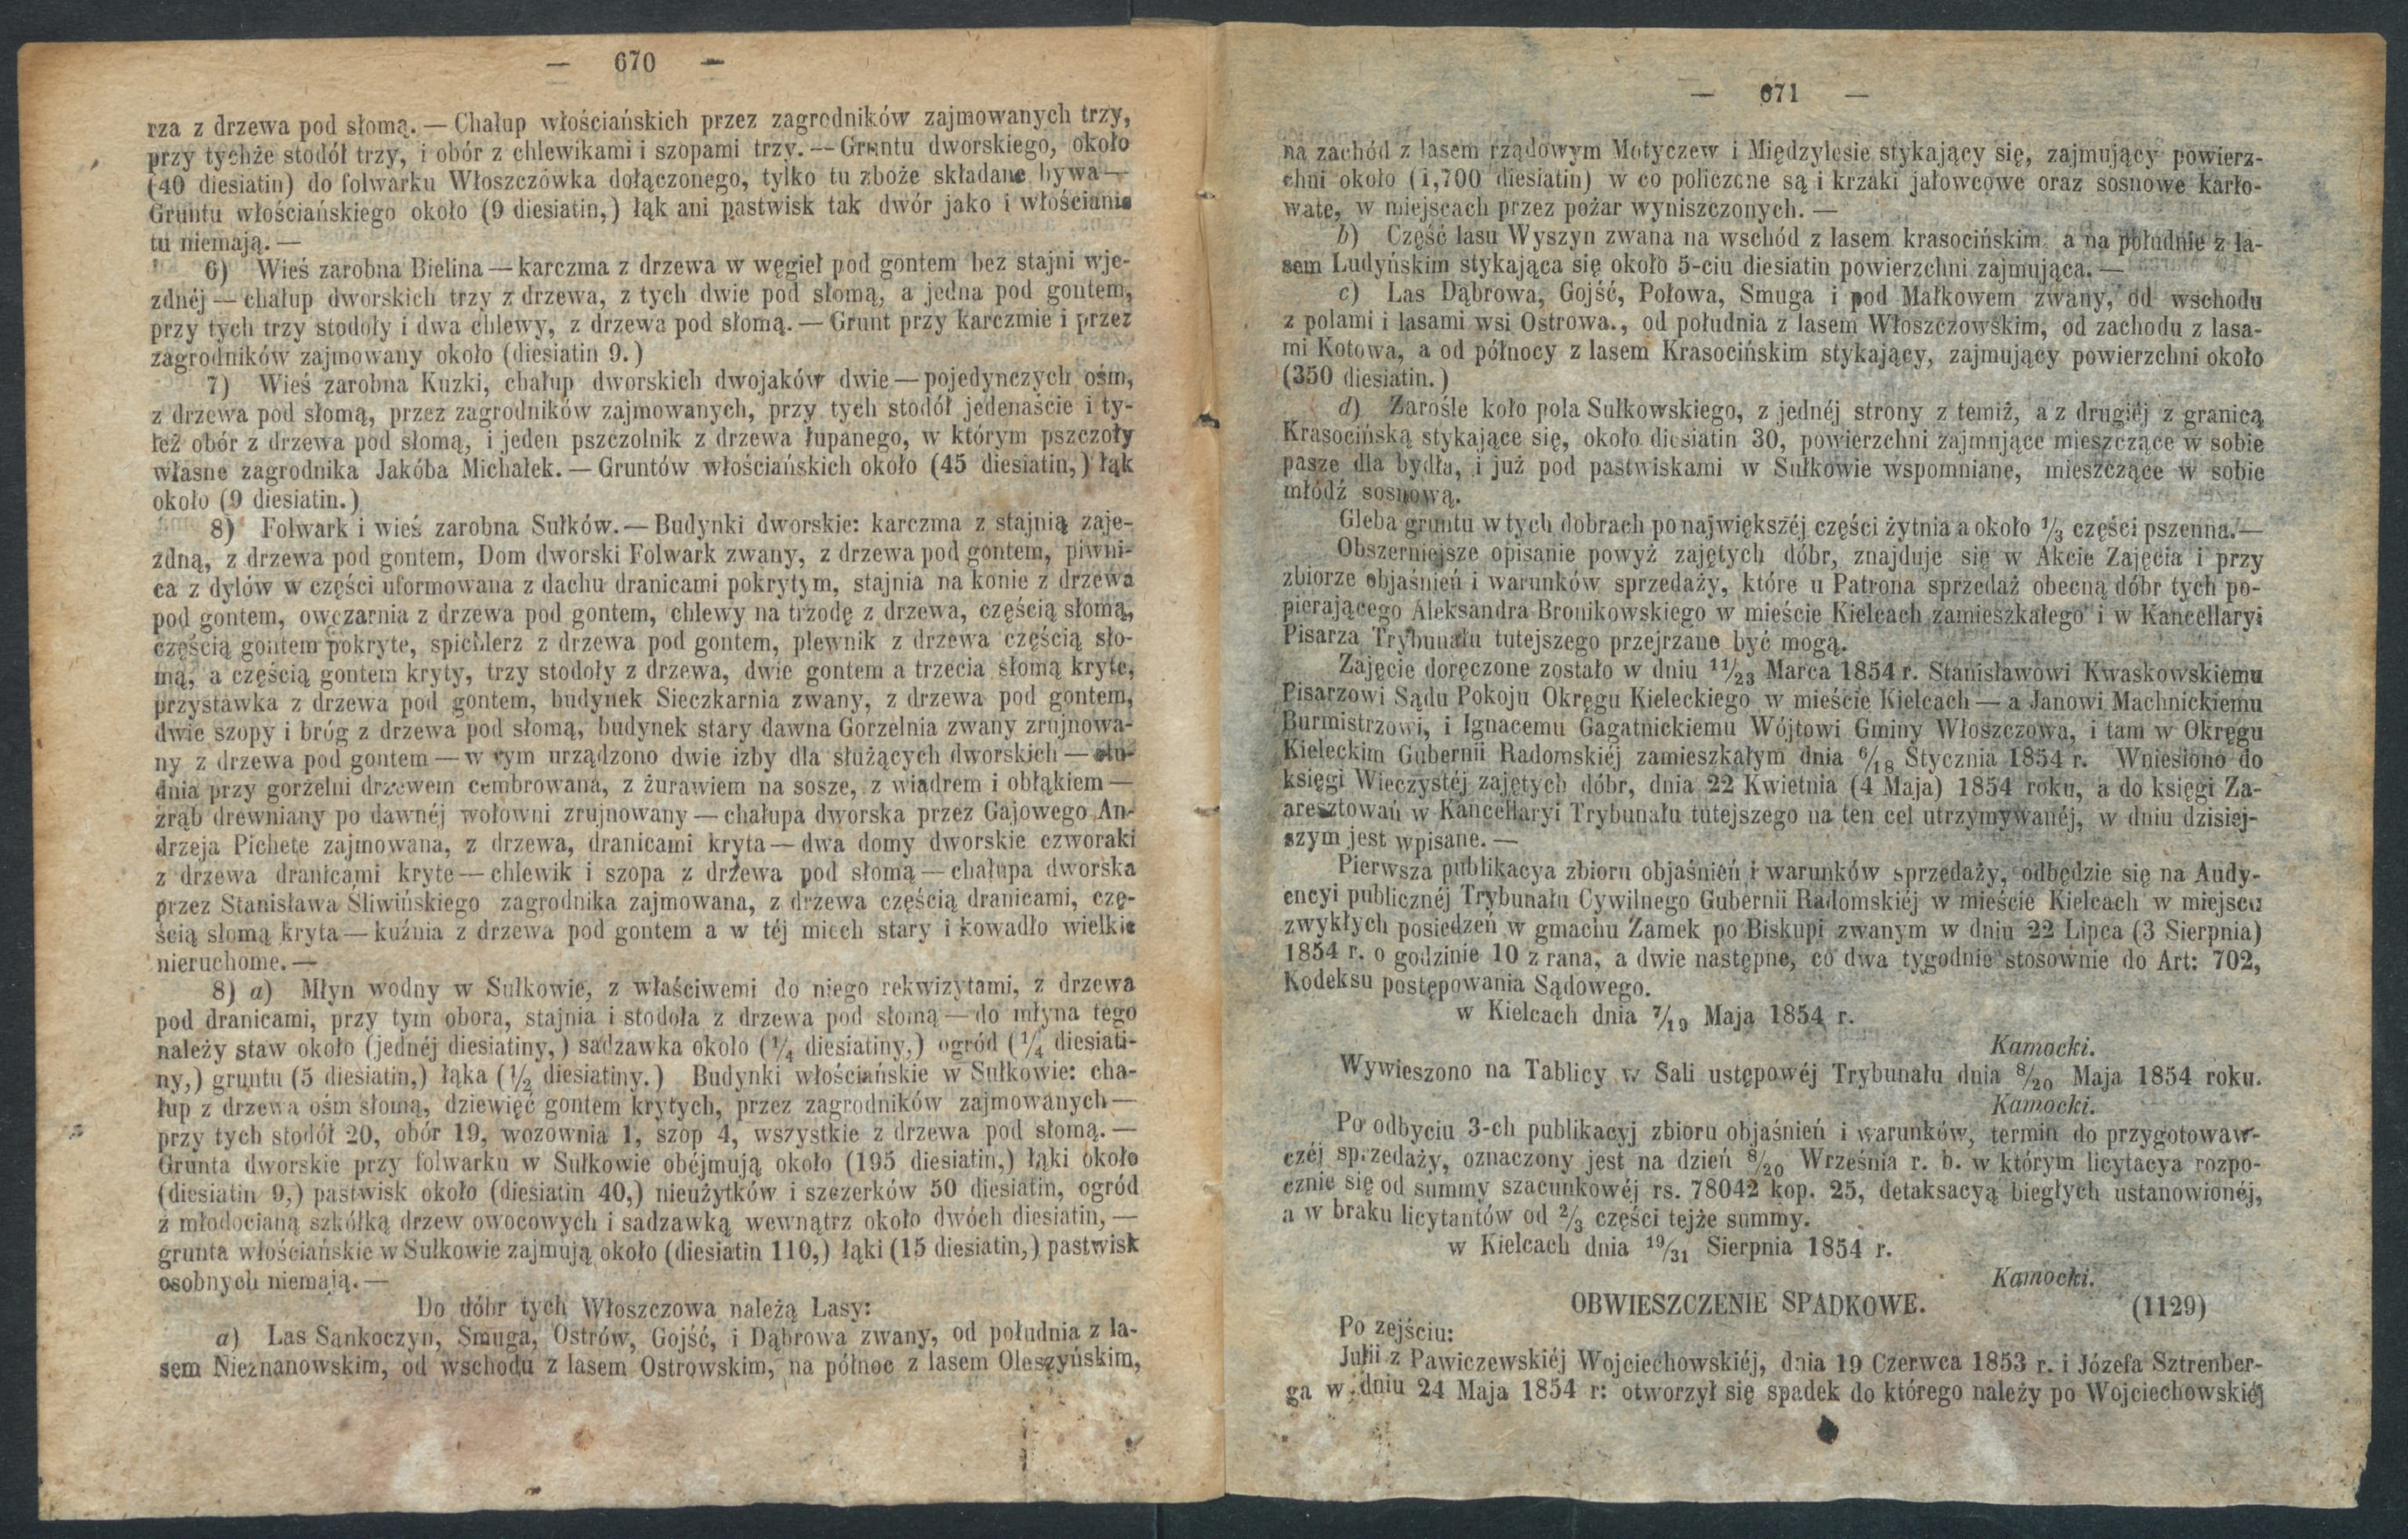 — 670 —
rza z drzewa pod słomą. — Chałup włościańskich przez zagrodników zajmowanych trzy,
przy tychże stodół trzy, i obór z chlewikami i szopami trzy. — Gruntu dworskiego, około
(40 diesiatin) do folwarku Włoszczówka dołączonego, tylko tu zboże składane bywa —
Gruntu włościańskiego około (9 diesiatin,) łąk ani pastwisk tak dwór jako i włościanie
tu niemają. —
6) Wieś zarobna Bielina — karczma z drzewa w węgieł pod gontem bez stajni wje-
zdnéj — chałup dworskich trzy z drzewa, z tych dwie pod słomą, a jedna pod gontem,
przy tych trzy stodoły i dwa chlewy, z drzewa pod słomą. — Grunt przy karczmie i przez
zagrodników zajmowany około (diesiatin 9.)
7) Wieś zarobna Kuzki, chałup dworskich dwojaków dwie — pojedynczych ośm,
z drzewa pod słomą, przez zagrodników zajmowanych, przy tych stodół jedenaście i ty-
leż obór z drzewa pod słomą, i jeden pszczolnik z drzewa łupanego, w którym pszczoły
własne zagrodnika Jakóba Michałek. — Gruntów włościańskich około (45 diesiatin,) łąk
około (9 diesiatin.)
8) Folwark i wieś zarobna Sułków. — Budynki dworskie: karczma z stajnią zaje-
zdną, z drzewa pod gontem, Dom dworski Folwark zwany, z drzewa pod gontem, piwni-
ca z dylów w części uformowana z dachu dranicami pokrytym, stajnia na konie z drzewa
pod gontem, owczarnia z drzewa pod gontem, chlewy na trzodę z drzewa, częścią słomą,
częścią gontem pokryte, spichlerz z drzewa pod gontem, plewnik z drzewa częścią sło-
mą, a częścią gontem kryty, trzy stodoły z drzewa, dwie gontem a trzecia słomą kryte,
przystawka z drzewa pod gontem, budynek Sieczkarnia zwany, z drzewa pod gontem,
dwie szopy i bróg z drzewa pod słomą, budynek stary dawna Gorzelnia zwany zrujnowa-
ny z drzewa pod gontem — w tym urządzono dwie izby dla służących dworskich — stu-
dnia przy gorzelni drzewem cembrowana, z żurawiem na sosze, z wiadrem i obłąkiem —
zrąb drewniany po dawnéj wołowni zrujnowany — chałupa dworska przez Gajowego An-
drzeja Pichete zajmowana, z drzewa, dranicami kryta — dwa domy dworskie czworaki
z drzewa dranicami kryte — chlewik i szopa z drzewa pod słomą — chałupa dworska
przez Stanisława Śliwińskiego zagrodnika zajmowana, z drzewa częścią dranicami, czę-
ścią słomą kryta — kuźnia z drzewa pod gontem a w téj miech stary i kowadło wielkie
nieruchome. —
8) a) Młyn wodny w Sułkowie, z właściwemi do niego rekwizytami, z drzewa
pod dranicami, przy tym obora, stajnia i stodoła z drzewa pod słomą — do młyna tego
należy staw około (jednéj diesiatiny,) sadzawka około (1/4 diesiatiny,) ogród (1/4 diesiati-
ny,) gruntu (5 diesiatin,) łąka (1/2 diesiatiny.) Budynki włościańskie w Sułkowie: cha-
łup z drzewa ośm słomą, dziewięć gontem krytych, przez zagrodników zajmowanych —
przy tych stodół 20, obór 19, wozownia 1, szop 4, wszystkie z drzewa pod słomą. —
Grunta dworskie przy folwarku w Sułkowie obéjmują około (195 diesiatin,) łąki około
(diesiatin 9,) pastwisk około (diesiatin 40,) nieużytków i szczerków 50 diesiatin, ogród
z młodocianą szkółką drzew owocowych i sadzawką wewnątrz około dwóch diesiatin, —
grunta włościańskie w Sułkowie zajmują około (diesiatin 110,) łąki (15 diesiatin,) pastwisk
osobnych niemają. —
Do dóbr tych Włoszczowa należą Lasy:
a) Las Sankoczyn, Smuga, Ostrów, Gojść, i Dąbrowa zwany, od południa z la-
sem Nieznanowskim, od wschodu z lasem Ostrowskim, na północ z lasem Oleszyńskim,
— 671 —
na zachód z lasem rządowym Motyczew i Międzylesie stykający się, zajmujący powierz-
chni około (1,700 diesiatin) w co policzone są i krzaki jałowcowe oraz sosnowe karło-
wate, w miejscach przez pożar wyniszczonych. —
b) Część lasu Wyszyn zwana na wschód z lasem krasocińskim, a na południe z la-
sem Ludyńskim stykająca się około 5-ciu diesiatin powierzchni zajmująca. —
c) Las Dąbrowa, Gojść, Połowa, Smuga i pod Małkowem zwany, od wschodu
z polami i lasami wsi Ostrowa., od południa z lasem Włoszczowskim, od zachodu z lasa-
mi Kotowa, a od północy z lasem Krasocińskim stykający, zajmujący powierzchni około
(350 diesiatin.)
d) Zarośle koło pola Sułkowskiego, z jednéj strony z temiż, a z drugiéj z granicą
Krasocińską stykające się, około diesiatin 30, powierzchni zajmnjące mieszczące w sobie
paszę dla bydła, i już pod pastwiskami w Sułkowie wspomniane, mieszczące w sobie
młódź sosnową.
Gleba gruntu w tych dobrach po największéj części żytnia a około 1/3 części pszenna. —
Obszerniejsze opisanie powyż zajętych dóbr, znajduje się w Akcie Zajęcia i przy
zbiorze objaśnień i warunków sprzedaży, które u Patrona sprzedaż obecną dóbr tych po-
pierającego Aleksandra Bronikowskiego w mieście Kielcach zamieszkałego i w Kancellaryi
Pisarza Trybunału tutejszego przejrzane być mogą.
Zajęcie doręczone zostało w dniu 11/23 Marca 1854 r. Stanisławowi Kwaskowskiemu
Pisarzowi Sądu Pokoju Okręgu Kieleckiego w mieście Kielcach — a Janowi Machnickiemu
Burmistrzowi, i Ignacemu Gagatnickiemu Wójtowi Gminy Włoszczowa, i tam w Okręgu
Kieleckim Gubernii Radomskiéj zamieszkałym dnia 6/18 Stycznia 1854 r. Wniesiono do
księgi Wieczystéj zajętych dóbr, dnia 22 Kwietnia (4 Maja) 1854 roku, a do księgi Za-
aresztowań w Kancellaryi Trybunału tutejszego na ten cel utrzymywanéj, w dniu dzisiej-
szym jest wpisane. —
Pierwsza publikacya zbioru objaśnień i warunków sprzedaży, odbędzie się na Audy-
encyi publicznéj Trybunału Cywilnego Gubernii Radomskiéj w mieście Kielcach w miejscu
zwykłych posiedzeń w gmachu Zamek po Biskupi zwanym w dniu 22 Lipca (3 Sierpnia)
1854 r. o godzinie 10 z rana, a dwie następne, co dwa tygodnie stosownie do Art: 702,
Kodeksu postępowania Sądowego.
w Kielcach dnia 7/19 Maja 1854 r.
Kamocki.
Wywieszono na Tablicy w Sali ustępowéj Trybunału dnia 8/20 Maja 1854 roku.
Kamocki.
Po odbyciu 3-ch publikacyj zbioru objaśnień i warunków, termin do przygotowaw-
czéj sprzedaży, oznaczony jest na dzień 8/20 Września r. b. w którym licytacya rozpo-
cznie się od summy szacunkowéj rs. 78042 kop. 25, detaksacyą biegłych ustanowionéj,
a w braku licytantów od 2/3 części tejże summy.
w Kielcach dnia 19/31 Sierpnia 1854 r.
Kamocki.
OBWIESZCZENIE SPADKOWE. (1129)
Po zejściu:
Julii z Pawiczewskiéj Wojciechowskiéj, dnia 19 Czerwca 1853 r. i Józefa Sztrenber-
ga w dniu 24 Maja 1854 r: otworzył się spadek do którego należy po Wojciechowskiéj